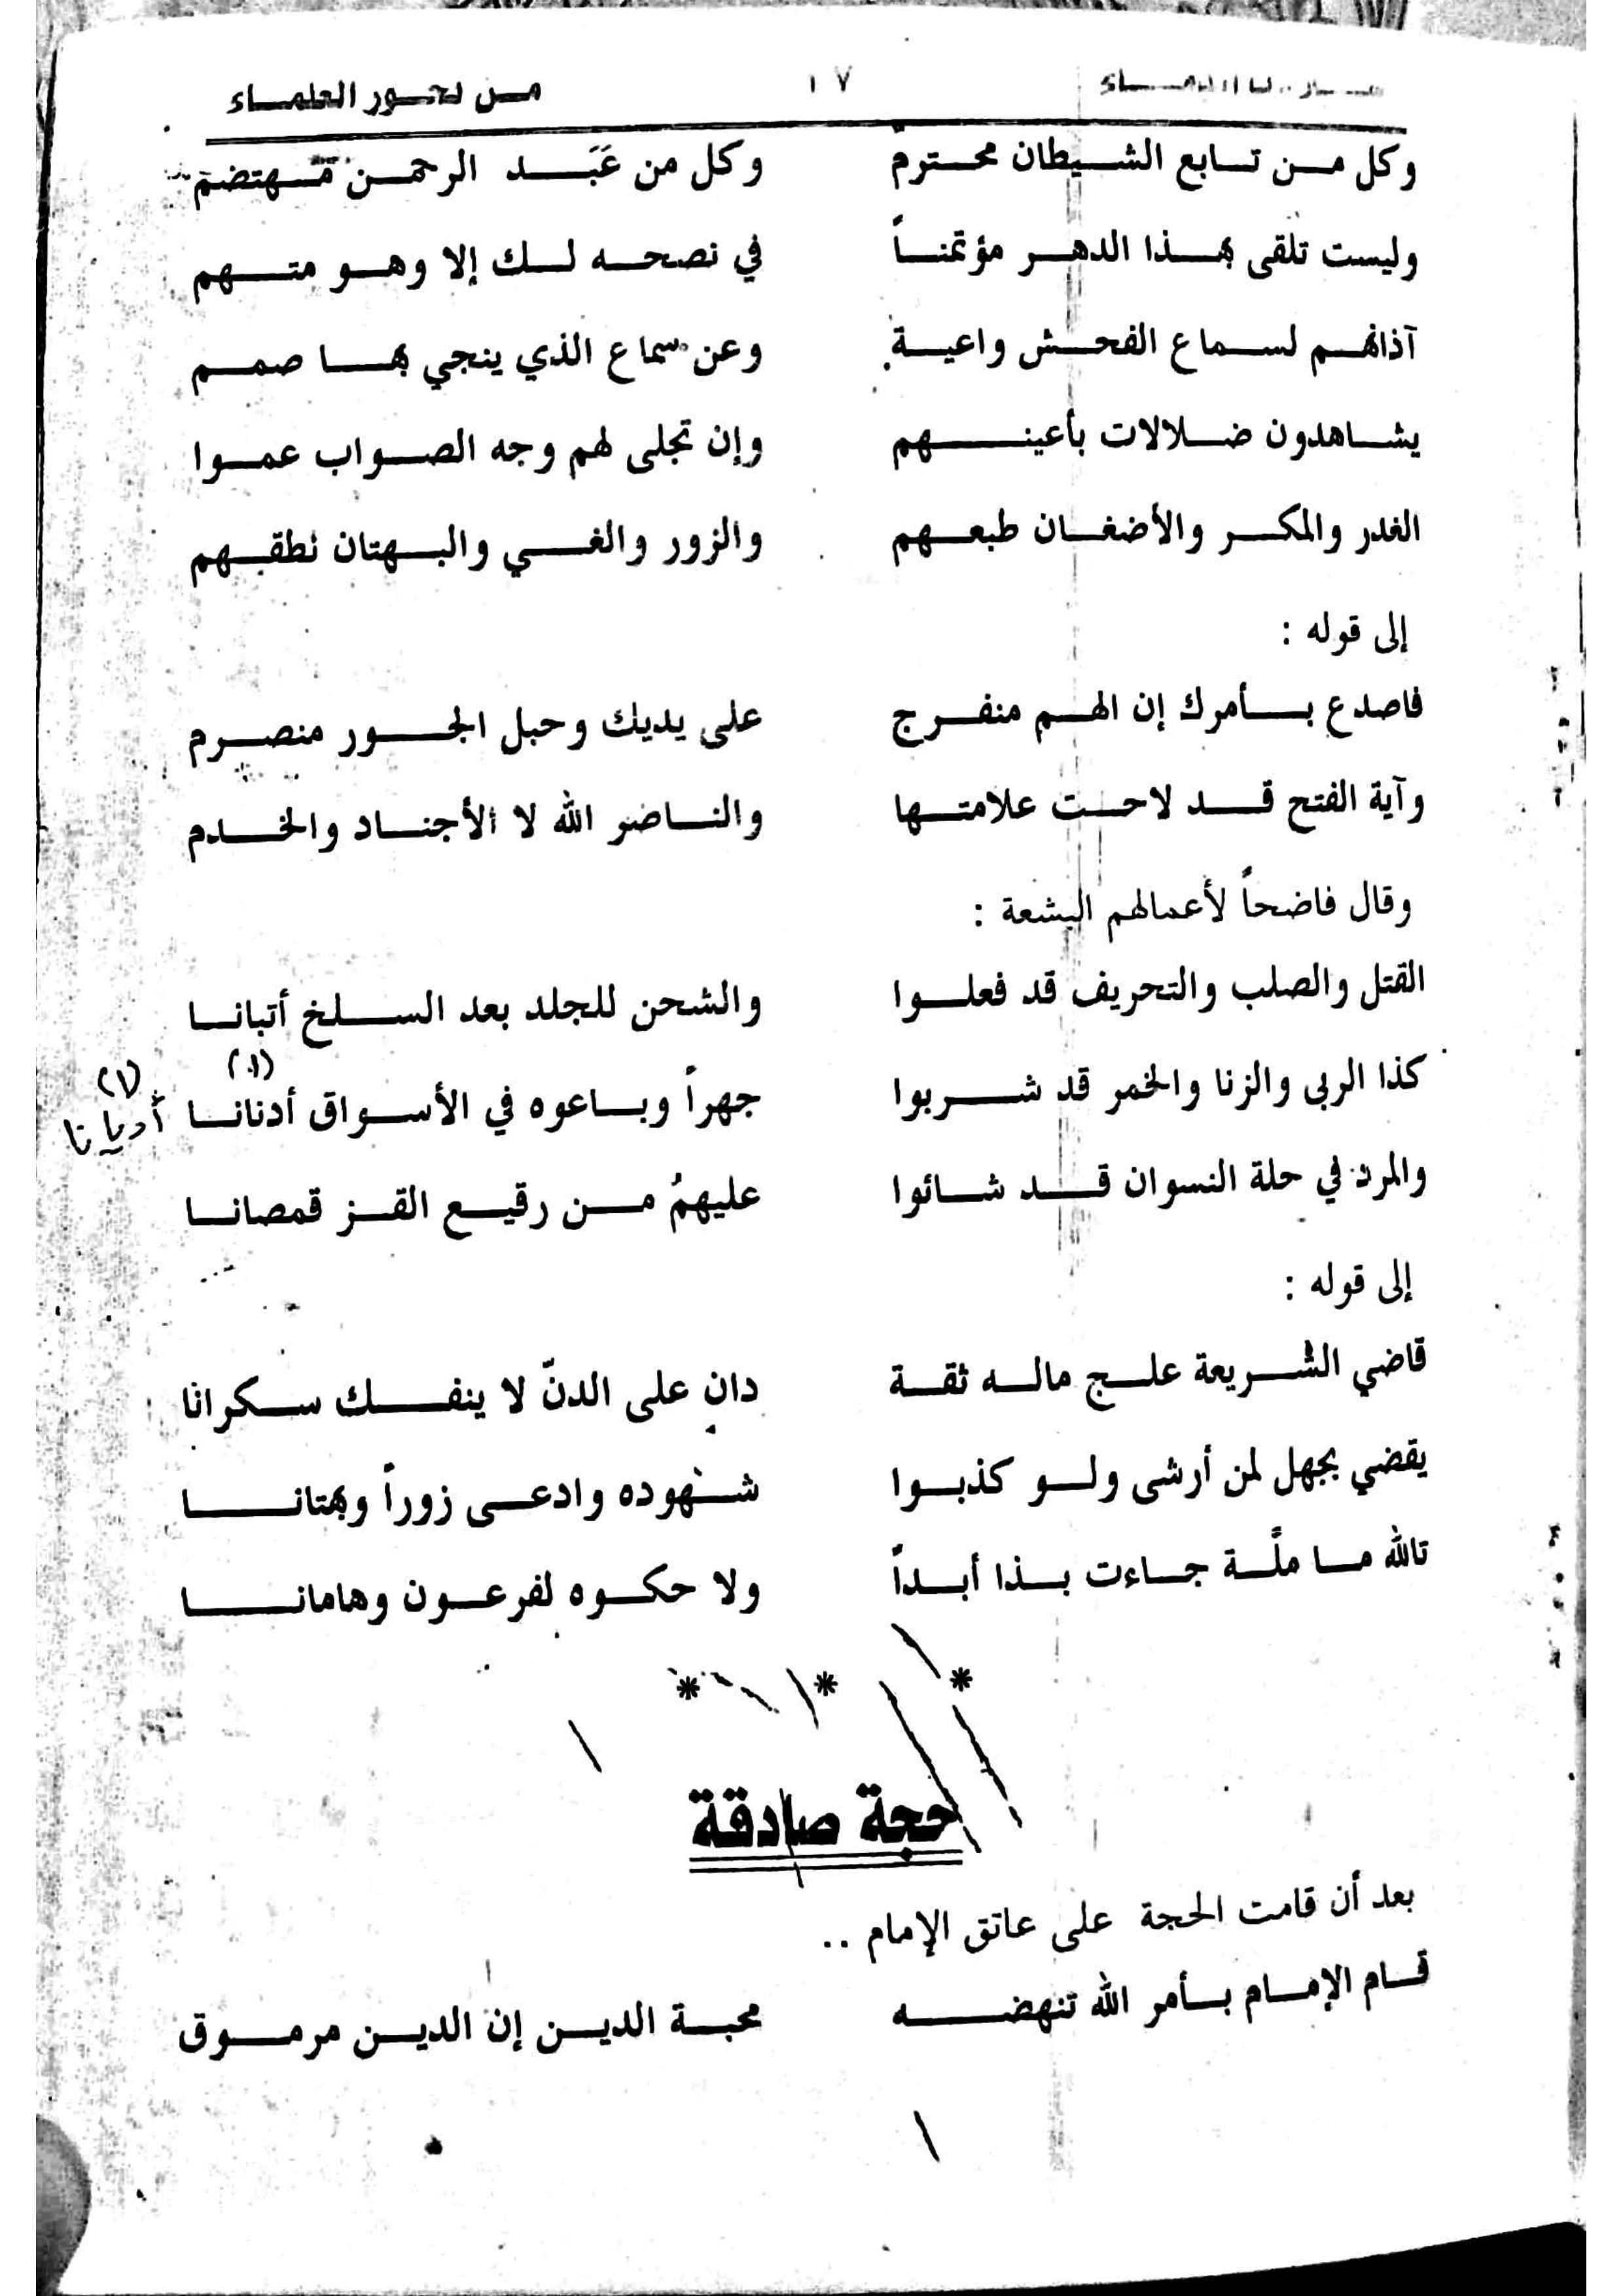 من نحور العلماء
١٧
وكل من تابع الشيطان محترم وكل من عَبَد الرحمن مهتضم
وليست تلقى بهذا الدهر مؤتمناً في نصحه لك إلا وهو متهم
آذانهم لسماع الفحش واعية وعن سماع الذي ينجي بها صمم
يشاهدون ضلالات بأعينهم وإن تجلى لهم وجه الصواب عموا
الغدر والمكر والأضغان طبعهم والزور والغي والبهتان نطقهم
إلى قوله :
فاصدع بأمرك إن الهم منفرج على يديك وحبل الجور منصرم
وآية الفتح قد لاحت علامتها والناصر الله لا الأجناد والخدم
وقال فاضحاً لأعمالهم البشعة :
القتل والصلب والتحريف قد فعلوا والشحن للجلد بعد السلخ أتبانا
كذا الربى والزنا والخمر قد شربوا جهراً وباعوه في الأسواق أدنانا (١)
(١) أديانا
والمرد في حلة النسوان قد شائوا عليهمُ من رقيع القز قمصانا
إلى قوله :
قاضي الشريعة علج ماله ثقة دانٍ على الدنّ لا ينفك سكرانا
يقضي بجهل لمن أرشى ولو كذبوا شهوده وادعى زوراً وبهتانا
تالله ما ملَّة جاءت بذا أبداً ولا حكوه لفرعون وهامانا
* * *
حجة صادقة
بعد أن قامت الحجة على عاتق الإمام ..
قام الإمام بأمر الله تنهضه محبة الدين إن الدين مرموق